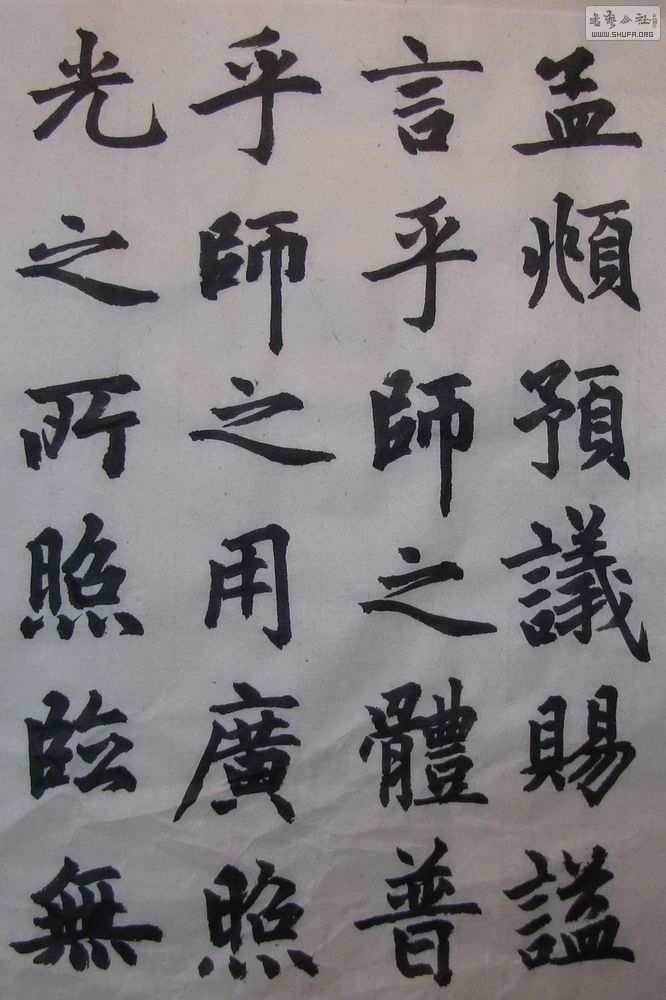 孟頫預議賜謚
言乎師之體普
乎師之用廣照
光之所照臨無
WWW.SHUFA.ORG